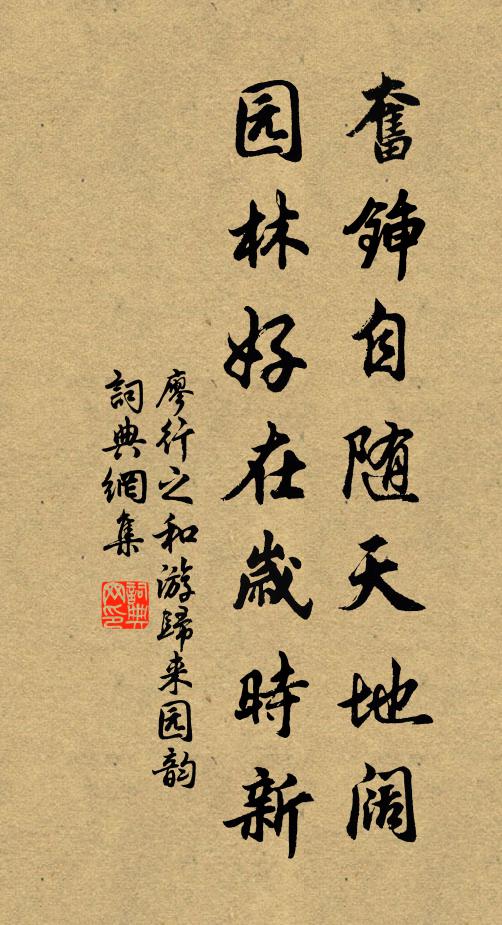 奮鍤自随天地阔
园林好在歲時新
廖行之和游歸来园韵
詞典網集
詞典
网印